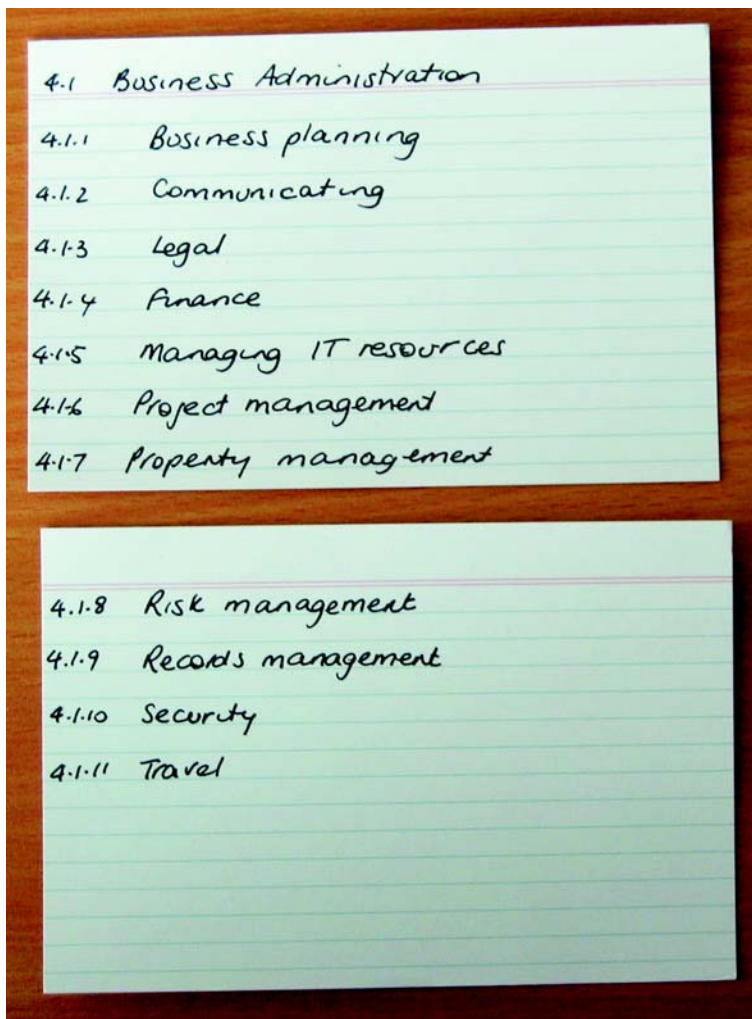 4.1 Business Administration
4.1.1 Business planning
4.1.2 Communicating
4.1.3 Legal
4.1.4 Finance
4.1.5 Managing IT resources
4.1.6 Project management
4.1.7 Property management
4.1.8 Risk management
4.1.9 Records management
4.1.10 Security
4.1.11 Travel